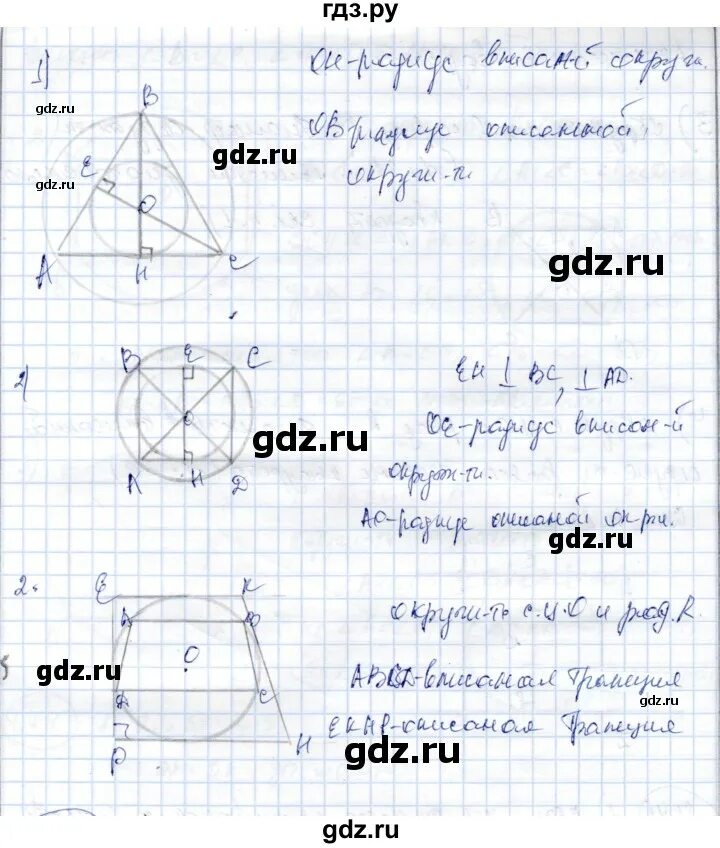 гдз.ру
1)
ОН-радиус вписан-й окружн.
ОВ-радиус описанной
окружн-ти
B
E
O
A
H
C
gdz.ru
gdz.ru
gdz.ru
gdz.ru
2)
B
E
C
O
A
H
D
EH ⊥ BC, ⊥ AD.
ОЕ-радиус вписан-й
окруж-ти.
АО-радиус описаной окр-ти.
gdz.ru
gdz.ru
2.
E
K
A
B
O
D
C
P
H
окружн-ть с ц. О и рад. R.
ABCD-вписаная Трапеция
EKHP-описаная Трапеция
gdz.ru
gdz.ru
gdz.ru